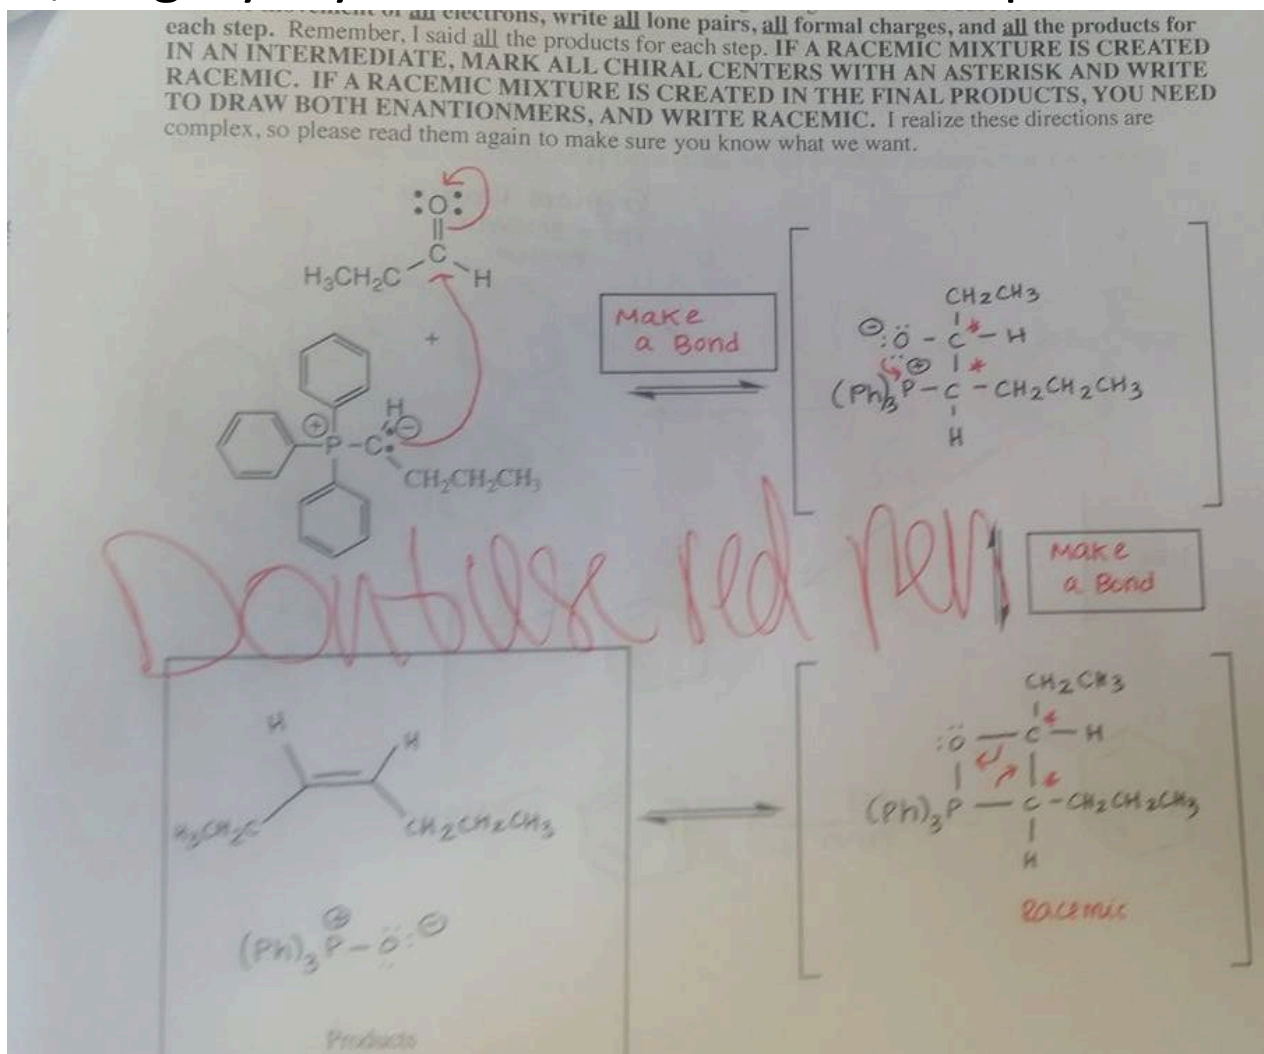 of all electrons, write all lone pairs, all formal charges, and all the products for
each step. Remember, I said all the products for each step. IF A RACEMIC MIXTURE IS CREATED
IN AN INTERMEDIATE, MARK ALL CHIRAL CENTERS WITH AN ASTERISK AND WRITE
RACEMIC. IF A RACEMIC MIXTURE IS CREATED IN THE FINAL PRODUCTS, YOU NEED
TO DRAW BOTH ENANTIONMERS, AND WRITE RACEMIC. I realize these directions are
complex, so please read them again to make sure you know what we want.
:O:
C
H₃CH₂C
H
+
H
⊕
P-C:
⊖
CH₂CH₂CH₃
Make
a Bond
CH₂CH₃
⊖:Ö - C* - H
⊕ *
(Ph)₃P - C - CH₂CH₂CH₃
H
Dont use red pen
Make
a Bond
CH₂CH₃
:Ö — C* — H
*
(Ph)₃P — C - CH₂CH₂CH₃
H
Racemic
H
H
H₃CH₂C
CH₂CH₂CH₃
⊕ ⊖
(Ph)₃P - Ö:
Products